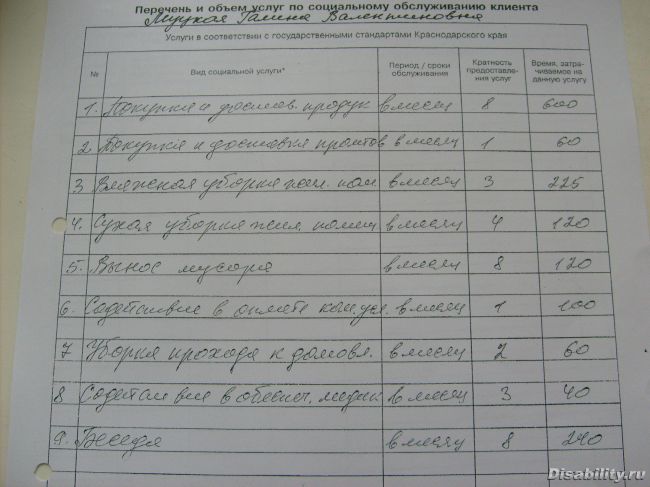 Перечень и объем услуг по социальному обслуживанию клиента
Муцкая Галина Валентиновна
Услуги в соответствии с государственными стандартами Краснодарского края
№ Вид социальной услуги* Период / сроки обслуживания Кратность предоставле- ния услуг Время, затра- чиваемое на данную услугу
1. Покупка и достав. продук в месяц 8 600
2 Покупка и доставка промтов в месяц 1 60
3 Влажная уборка жил. пом в месяц 3 225
4. Сухая уборка жил. помещ в месяц 4 120
5. Вынос мусора в месяц 8 120
6. Содействие в оплате ком. ус. в месяц 1 100
7 Уборка прохода к домовл. в месяц 2 60
8 Содейст вие в обеспеч. медик в месяц 3 40
9. Беседа в месяц 8 240
Disability.ru